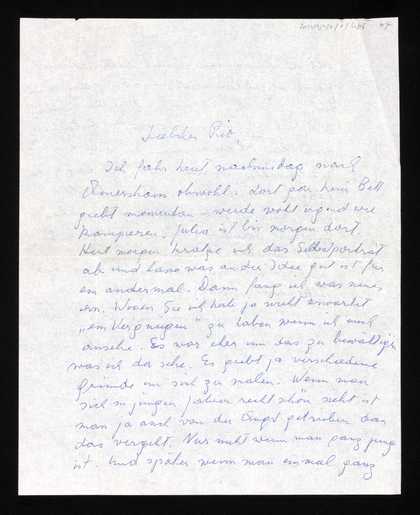 Liebster Pio,
Ich fahr heut nachmittag nach
Amersham obwohl dort gar kein Bett
giebt momentan – werde wohl irgend wie
kampieren. Julia ist bis morgen dort.
Heut morgen kratze ich das Selbstporträt
ab und lasse was an der Idee gut ist für
ein andermal. Dann fang ich was neues
an. Wissen Sie ich habe ja nicht erwartet
„ein Vergnügen" zu haben wenn ich mich
ansehe. Es war eher um das zu bewältigen
was ich da sehe. Es giebt ja verschiedene
Gründe um sich zu malen. Wenn man
sich in jungen Jahren recht schön sieht ist
man ja auch von der Angst getrieben dass
das vergeht. Nur nicht wenn man ganz jung
ist. Und später wenn man einmal ganz